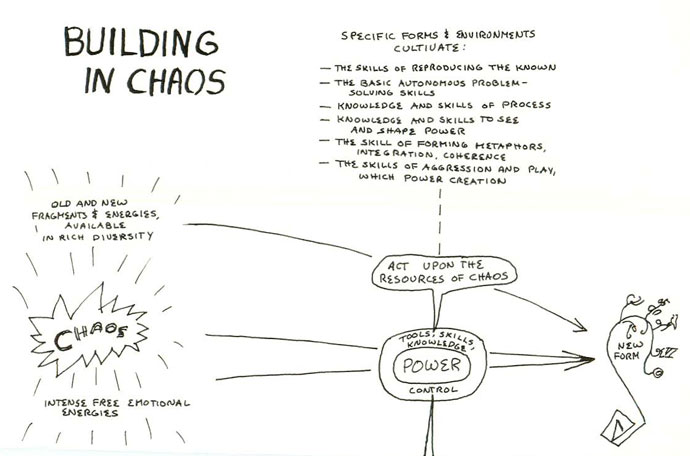 BUILDING
IN CHAOS
SPECIFIC FORMS & ENVIRONMENTS
CULTIVATE:
— THE SKILLS OF REPRODUCING THE KNOWN
— THE BASIC AUTONOMOUS PROBLEM-
SOLVING SKILLS
— KNOWLEDGE AND SKILLS OF PROCESS
— KNOWLEDGE AND SKILLS TO SEE
AND SHAPE POWER
— THE SKILL OF FORMING METAPHORS,
INTEGRATION, COHERENCE
— THE SKILLS OF AGGRESSION AND PLAY,
WHICH POWER CREATION
OLD AND NEW
FRAGMENTS & ENERGIES,
AVAILABLE
IN RICH DIVERSITY
ACT UPON THE
RESOURCES OF CHAOS
CHAOS
TOOLS, SKILLS,
KNOWLEDGE
POWER
CONTROL
NEW
FORM
INTENSE FREE EMOTIONAL
ENERGIES